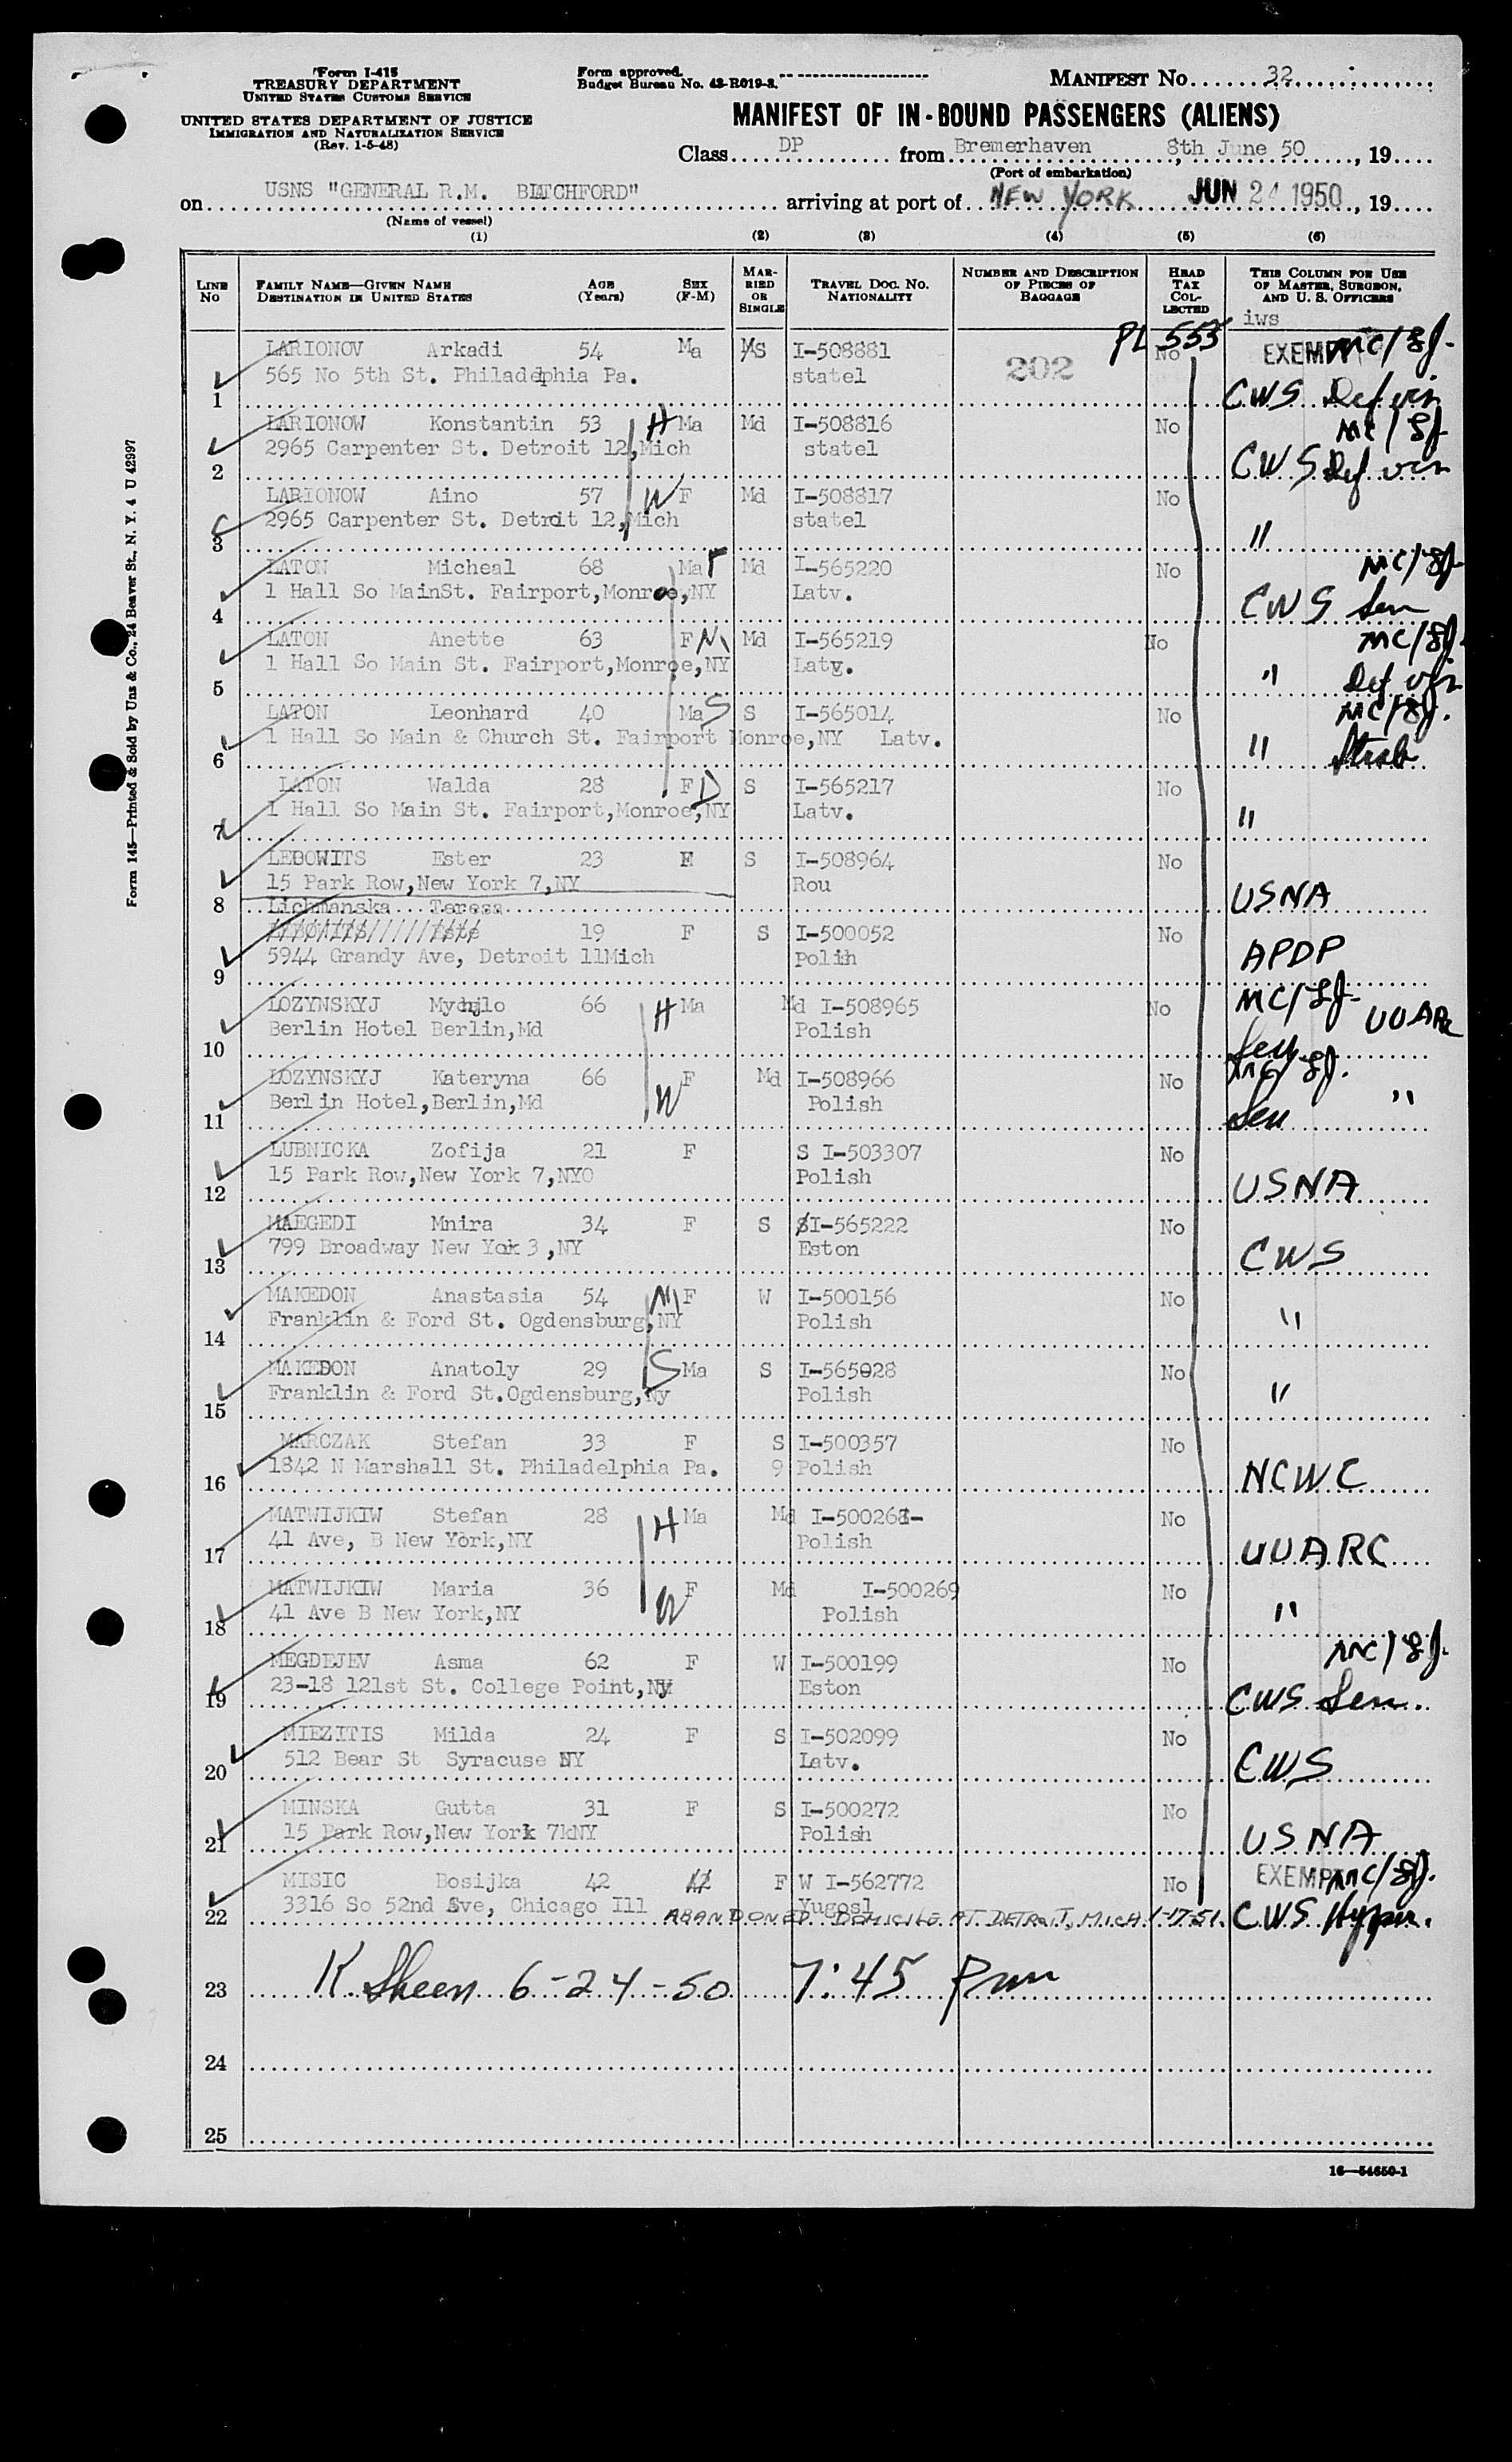 Form I-415
TREASURY DEPARTMENT
UNITED STATES CUSTOMS SERVICE
UNITED STATES DEPARTMENT OF JUSTICE
IMMIGRATION AND NATURALIZATION SERVICE
(Rev. 1-5-48)
Form approved.
Budget Bureau No. 43-R019-3.
MANIFEST NO. 32
MANIFEST OF IN-BOUND PASSENGERS (ALIENS)
Class DP from Bremerhaven, 8th June 50, 19
(Port of embarkation)
on USNS "GENERAL R.M. BLATCHFORD" arriving at port of NEW YORK JUN 24 1950, 19
(Name of vessel)
(1) (2) (3) (4) (5) (6)
LINE No FAMILY NAME—GIVEN NAME DESTINATION IN UNITED STATES AGE (Years) SEX (F-M) MARRIED OR SINGLE TRAVEL DOC. NO. NATIONALITY NUMBER AND DESCRIPTION OF PIECES OF BAGGAGE HEAD TAX COLLECTED THIS COLUMN FOR USE OF MASTER, SURGEON, AND U. S. OFFICERS
iws
PL 555
LARIONOV Arkadi 54 Ma S I-508881 202 No EXEMPT MC/SJ.
565 No 5th St. Philadelphia Pa. statel
1 CWS Def vis
LARIONOW Konstantin 53 H Ma Md I-508816 No MC/SJ
2965 Carpenter St. Detroit 12,Mich statel
2 CWS Def vis
LARIONOW Aino 57 W F Md I-508817 No
2965 Carpenter St. Detroit 12,Mich statel
3 "
LATON Micheal 68 Ma F Md I-565220 No MC/SJ
1 Hall So MainSt. Fairport,Monroe,NY Latv.
4 CWS Sen
LATON Anette 63 F M Md I-565219 No MC/SJ.
1 Hall So Main St. Fairport,Monroe,NY Latv.
5 " Def vis
LATON Leonhard 40 Ma S S I-565014 No MC/SJ.
1 Hall So Main & Church St. Fairport Monroe,NY Latv.
6 " Strab
LATON Walda 28 F D S I-565217 No
1 Hall So Main St. Fairport,Monroe,NY Latv.
7 "
LEBOWITS Ester 23 F S I-508964 No
15 Park Row,New York 7,NY Rou
8 USNA
Lichmanska Teresa
19 F S I-500052 No
5944 Grandy Ave, Detroit 11Mich Polih
9 APDP
LOZYNSKYJ Mychjlo 66 H Ma Md I-508965 No MC/SJ- UUARC
Berlin Hotel Berlin,Md Polish
10 Sen
LOZYNSKYJ Kateryna 66 W F Md I-508966 No MC/SJ. "
Berlin Hotel,Berlin,Md Polish
11 Sen
LUBNICKA Zofija 21 F S I-503307 No
15 Park Row,New York 7,NYO Polish
12 USNA
MAEGEDI Mnira 34 F S I-565222 No
799 Broadway New Yok 3,NY Eston
13 CWS
MAKEDON Anastasia 54 M F W I-500156 No
Franklin & Ford St. Ogdensburg,NY Polish
14 "
MAKEDON Anatoly 29 S Ma S I-565028 No
Franklin & Ford St.Ogdensburg,Ny Polish
15 "
MARCZAK Stefan 33 F S I-500357 No
1842 N Marshall St. Philadelphia Pa. 9 Polish
16 NCWC
MATWIJKIW Stefan 28 H Ma Md I-500268- No
41 Ave, B New York,NY Polish
17 UUARC
MATWIJKIW Maria 36 W F Md I-500269 No
41 Ave B New York,NY Polish
18 "
MEGDEJEV Asma 62 F W I-500199 No MC/SJ.
23-18 121st St. College Point,NY Eston
19 CWS Sen.
MIEZITIS Milda 24 F S I-502099 No
512 Bear St Syracuse NY Latv.
20 CWS
MINSKA Gutta 31 F S I-500272 No
15 Park Row,New York 7kNY Polish
21 USNA
MISIC Bosijka 42 F W I-562772 No EXEMPT MC/SJ.
3316 So 52nd Ave, Chicago Ill Yugosl
22 ABANDONED DOMICILE AT DETROIT, MICH 1-17-51. CWS Hyper.
23 K Sheen 6-24-50 7:45 Pm
24
25
16—54650-1
Form 145—Printed & Sold by Unz & Co., 24 Beaver St., N. Y. 4 U 42997